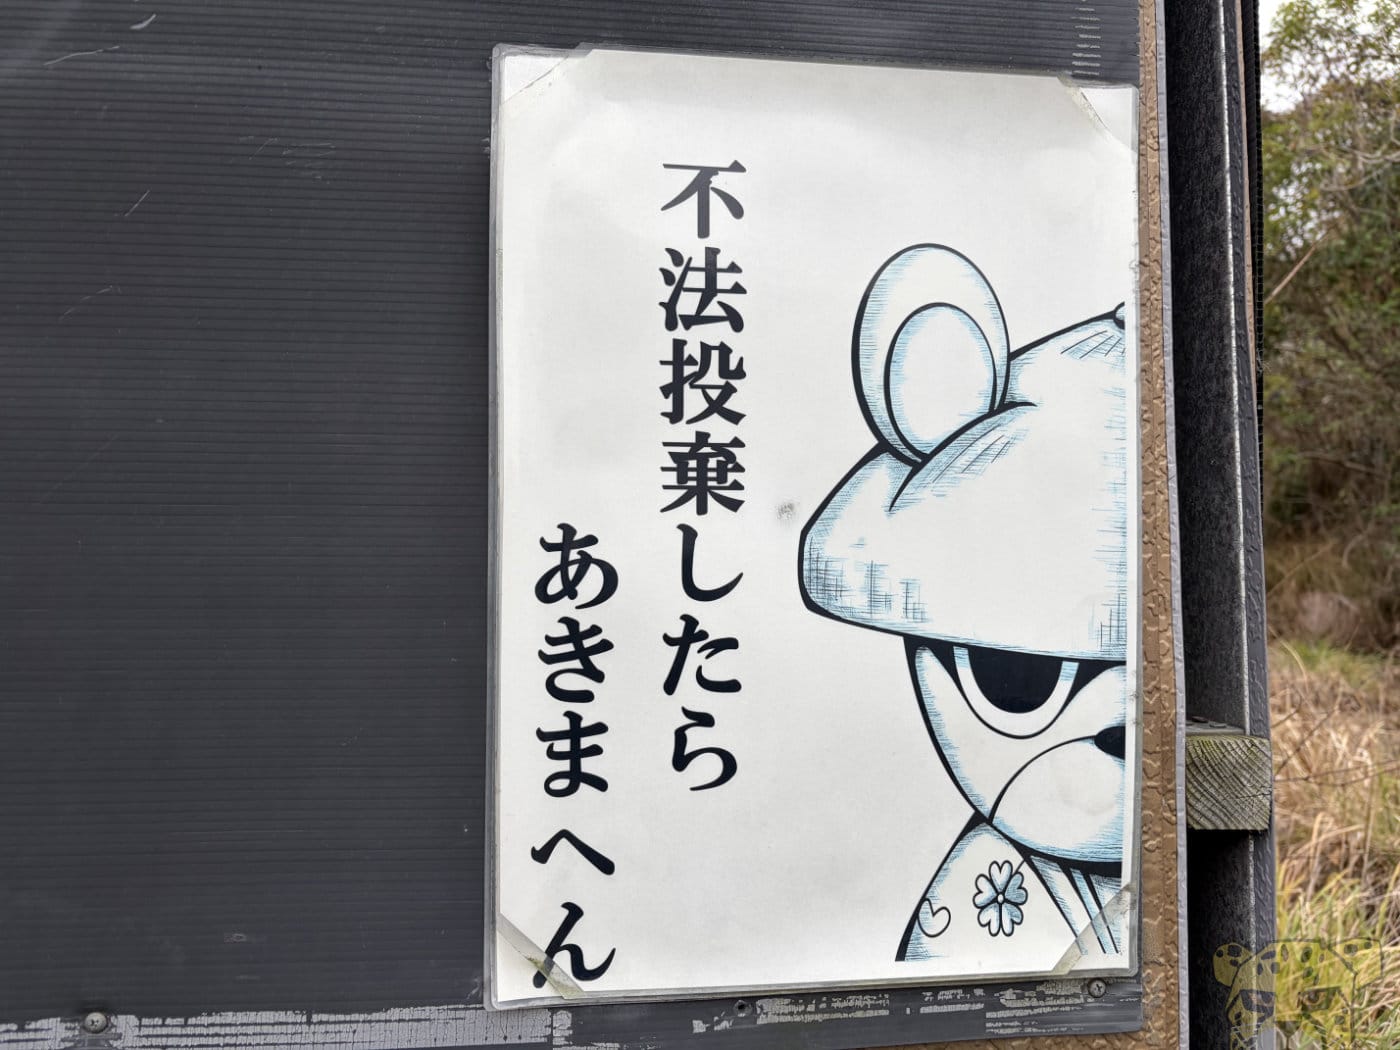 不法投棄したら
あきまへん